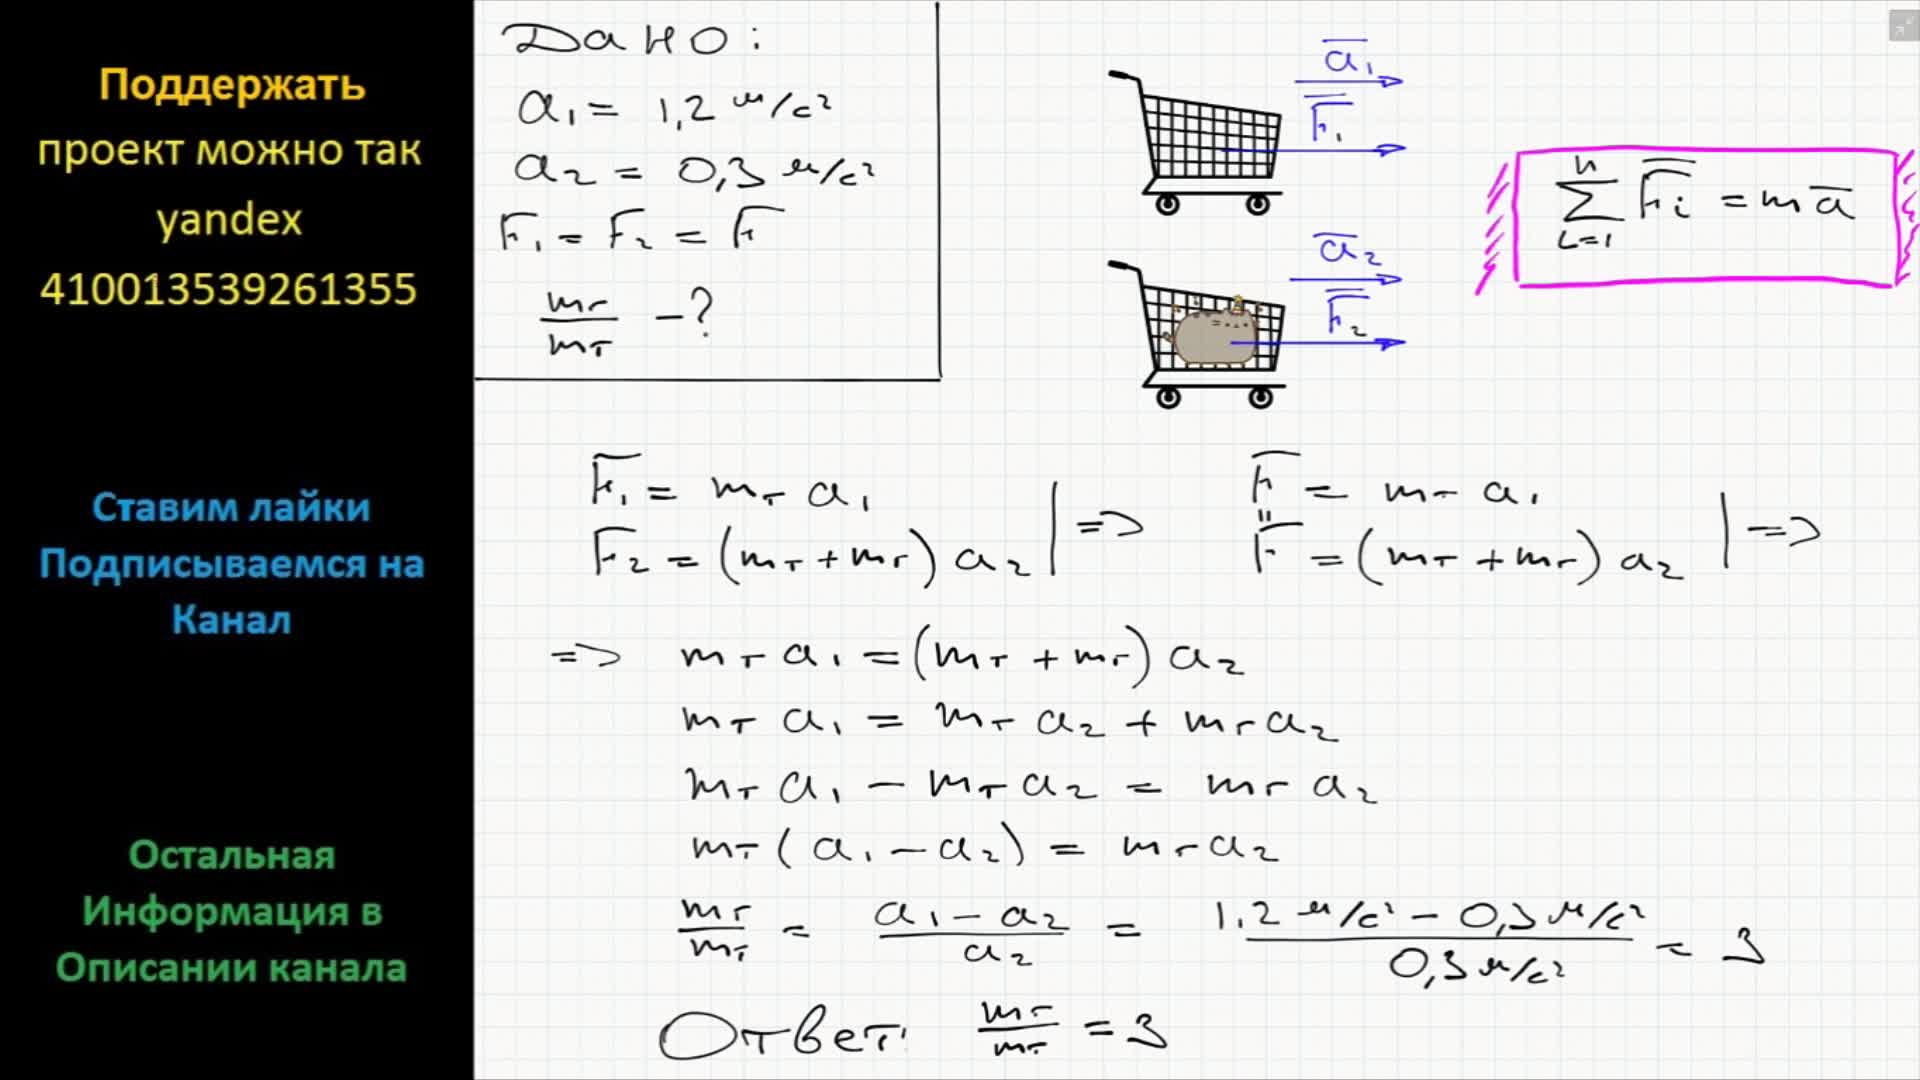 Поддержать
проект можно так
yandex
410013539261355
Ставим лайки
Подписываемся на
Канал
Остальная
Информация в
Описании канала
Дано:
a₁ = 1,2 м/с²
a₂ = 0,3 м/с²
F₁ = F₂ = F
mг/mт - ?
a̅₁
F̅₁
a̅₂
F̅₂
n
∑ F̅i = ma̅
i=1
F̅₁ = mт a₁
F̅₂ = (mт + mг) a₂ | =>
F̅ = mт a₁
"
F̅ = (mт + mг) a₂ | =>
=> mт a₁ = (mт + mг) a₂
mт a₁ = mт a₂ + mг a₂
mт a₁ - mт a₂ = mг a₂
mт (a₁ - a₂) = mг a₂
mг/mт = (a₁ - a₂)/a₂ = (1,2 м/с² - 0,3 м/с²)/(0,3 м/с²) = 3
Ответ: mг/mт = 3